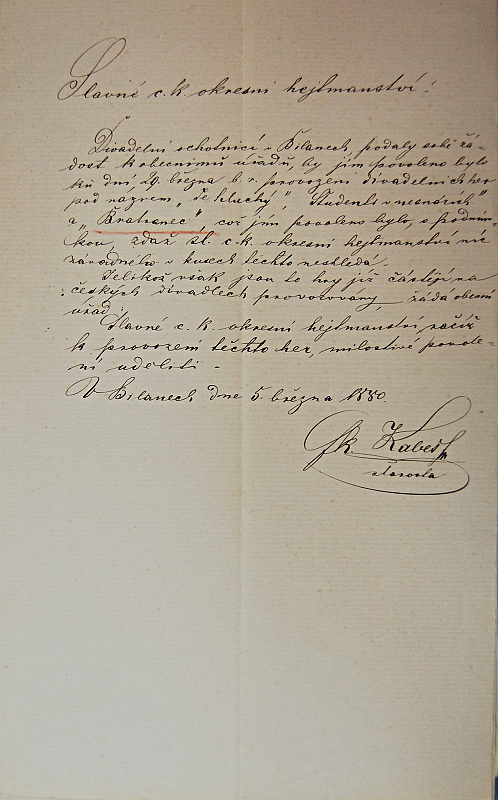 Slavné c. k. okresní hejtmanství!
Divadelní ochotníci v Bílanech, podaly sobě žá-
dost k obecnímu úřadů, by jim povoleno bylo
ku dni, 29. března b. r. provození divadelních her
pod nazvem „Je hluchý", „Studenti v nesnázích"
a „Bratranec", což jim povoleno bylo, s podmín-
kou, zdaž sl. c. k. okresní hejtmanství nic
závadného v kusech těchto neshledá.
Jelikož však jsou to hry již částěji na
českých divadlech provozovany, žádá obecní
úřad:
Slavné c. k. okresní hejtmanství, račiž
k provození těchto her, milostivé povole-
ní uděliti.
V Bílanech dne 5. března 1880.
Fr. Kabeš
starosta